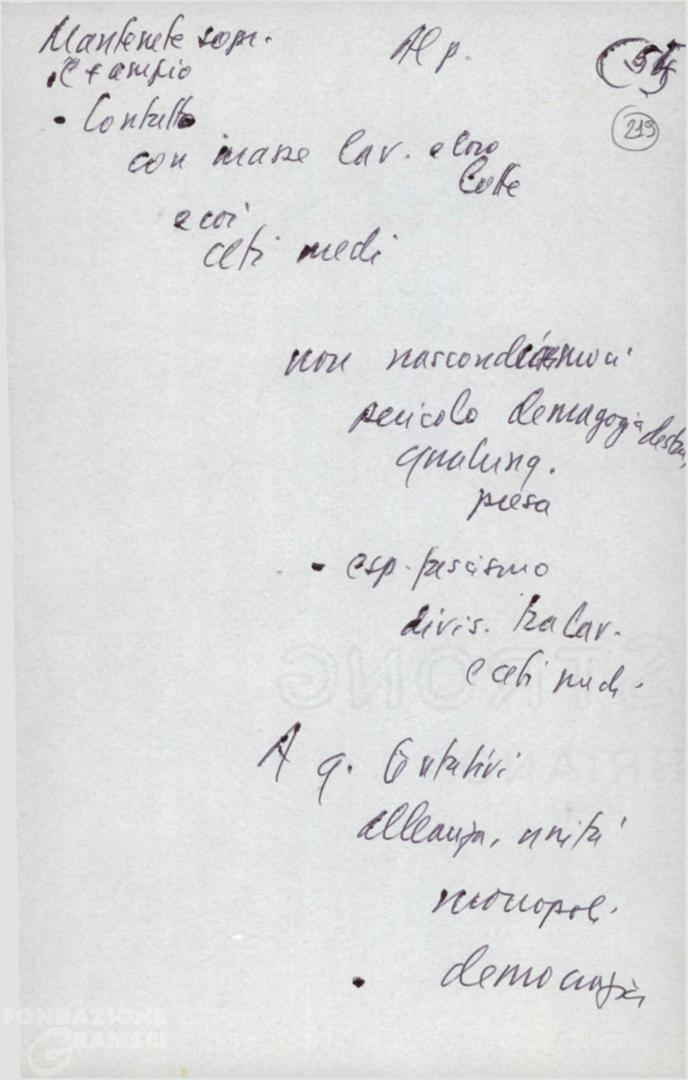 Mantenete sopr. Al p. 54
è + ampio 219
• Contatto
con masse lav. e loro
lotte
e coi
ceti medi
non nascondiamoci
pericolo demagogia destra,
qualunq.
presa
• esp. fascismo
divis. tra lav.
e ceti med.
A q. tentativi
alleanza, unità
monopol.
• democrazia
FONDAZIONE
GRAMSCI